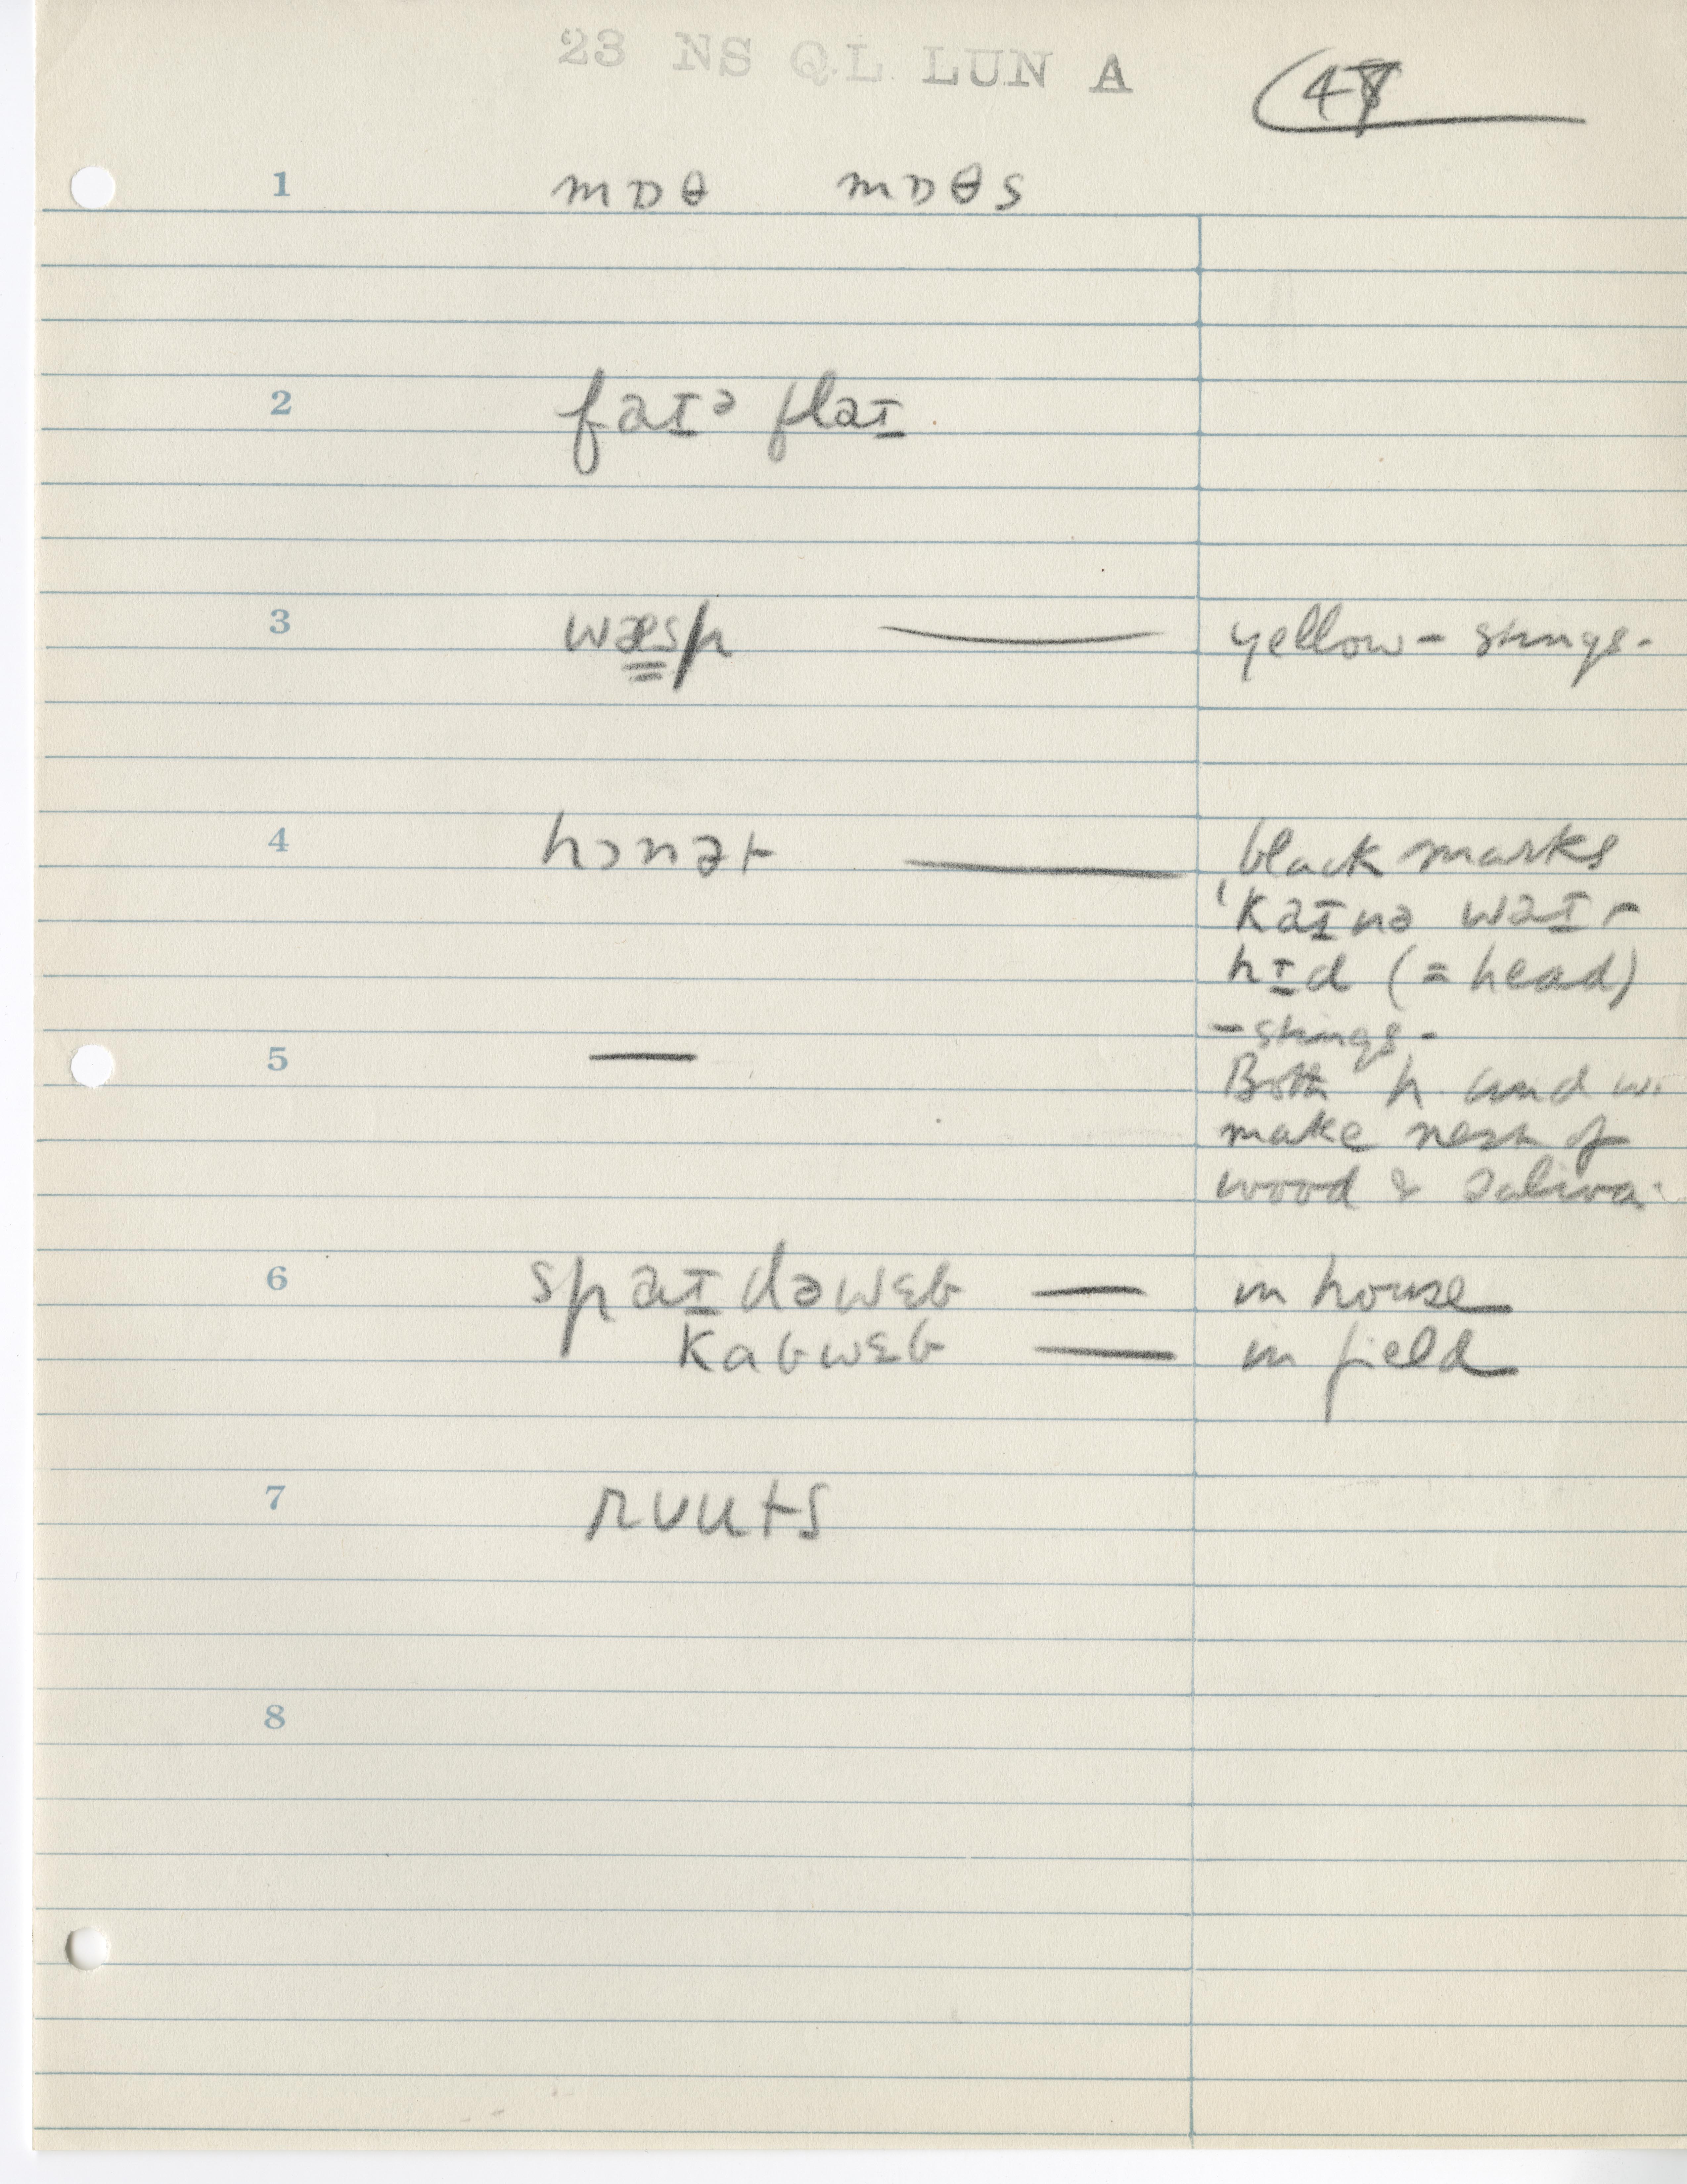 23 NS QL LUN A
48
1 mɒθ mɒθs
2 faɪᵊ flaɪ
3 wæsp — yellow - stings -
4 hɔnət — black marks
'kaɪnə waɪ -
hɪd (= head)
- stings -
5 — Both h. and w.
make nest of
wood & saliva.
6 spaɪdəwɛb — in house
kabwɛb — in field
7 rʊuts
8